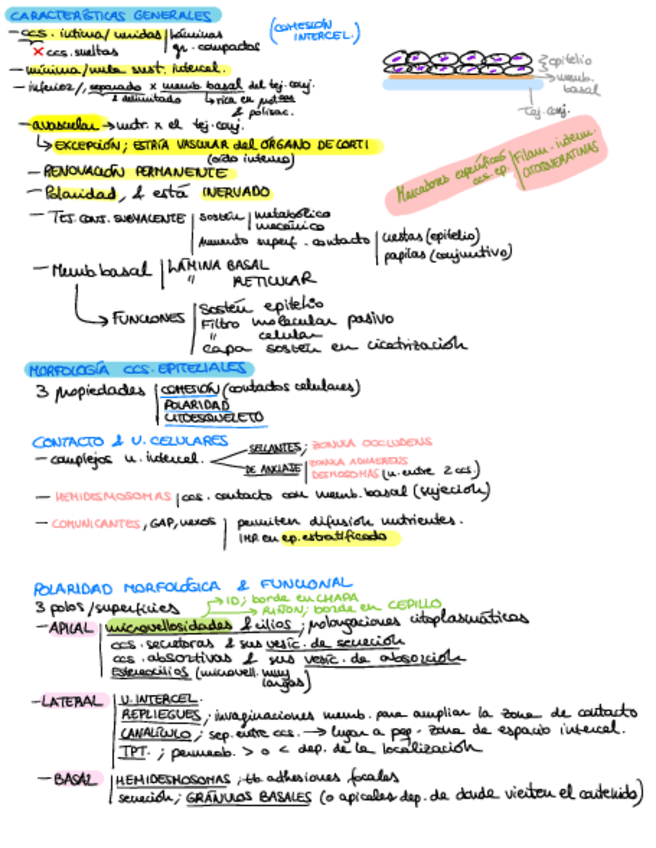 CARACTERÍSTICAS GENERALES
- ccs. íntima/ unidas | láminas
gr. compactos
(COHESIÓN INTERCEL.)
X ccs. sueltas
- mínima/nula sust. intercel.
- inferior/, separado x memb. basal del tej. conj.
& delimitado
↳ rica en
& polisac.
- avascular → nutr. x el tej. conj.
↳ EXCEPCIÓN; ESTRÍA VASCULAR del ÓRGANO DE CORTI
(oído interno)
- RENOVACIÓN PERMANENTE
- Polaridad, & está INERVADO
epitelio
memb. basal
Tej. conj.
Marcadores específicos ccs. ep. | Filam. interm. CITOQUERATINAS
- TEJ. CONJ. SUBYACENTE | sostén | metabólico
mecánico
Aumento superf. contacto | crestas (epitelio)
papilas (conjuntivo)
- Memb basal | LÁMINA BASAL
" RETICULAR
→ FUNCIONES | Sostén epitelio
Filtro molecular pasivo
" celular
capa sostén en cicatrización
MORFOLOGÍA CCS. EPITELIALES
3 propiedades | COHESIÓN (contactos celulares)
POLARIDAD
CITOESQUELETO
CONTACTO & U. CELULARES
- complejos u. intercel.
SELLANTES; ZONULA OCCLUDENS
DE ANCLAJE | ZONULA ADHAERENS
DESMOSOMAS (u. entre 2 ccs.)
- HEMIDESMOSOMAS | ccs. contacto con memb. basal (sujeción)
- COMUNICANTES, GAP, nexos | permiten difusión nutrientes.
IMP. en ep. estratificado
POLARIDAD MORFOLÓGICA & FUNCIONAL
3 polos/superficies
→ ID; borde en CHAPA
→ RIÑÓN; borde en CEPILLO
- APICAL | microvellosidades & cilios; prolongaciones citoplasmáticas
ccs. secretoras & sus vesíc. de secreción
ccs. absortivas & sus vesíc. de absorción
Estereocilios (microvell. muy largas)
- LATERAL | U. INTERCEL.
REPLIEGUES; invaginaciones memb. para ampliar la zona de contacto
CANALÍCULO; sep. entre ccs. → lugar a peq. zona de espacio intercel.
TPT.; permeab. > o < dep. de la localización
- BASAL | HEMIDESMOSOMAS; tb adhesiones focales
secreción; GRÁNULOS BASALES (o apicales dep. de donde vierten el contenido)